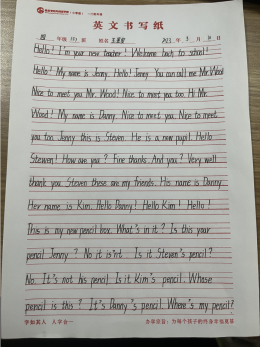 英文书写纸
年级 班 姓名 年 月 日
Hello! I'm your new teacher! Welcome back to school!
Hello! My name is Jenny. Hello! Jenny. You can call me Mr. Wood
Nice to meet you Mr. Wood! Nice to meet you too. Hi Mr.
Wood! My name is Danny. Nice to meet you. Nice to meet
you too. Jenny this is Steven. He is a new pupil. Hello
Steven! How are you? Fine thanks. And you? Very well
thank you. Steven these are my friends. His name is Danny.
Her name is Kim. Hello Danny! Hello Kim! Hello!
This is my new pencil box. What's in it? Is this your
pencil Jenny? No it isn't. Is it Steven's pencil?
No. It's not his pencil. Is it Kim's pencil. Whose
pencil is this? It's Danny's pencil. Where's my pencil?
字如其人 人字合一